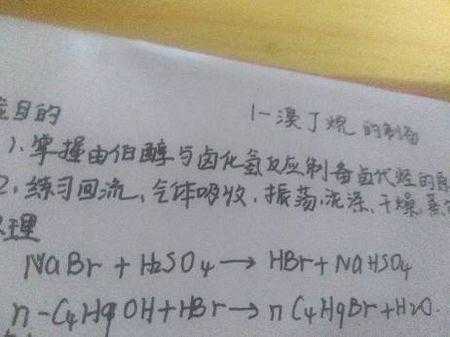 1-溴丁烷的制备
验目的
1、掌握由伯醇与卤化氢反应制备卤代烃的
2、练习回流、气体吸收、振荡、洗涤、干燥、蒸
原理
NaBr + H2SO4 → HBr + NaHSO4
n-C4H9OH + HBr → n C4H9Br + H2O.